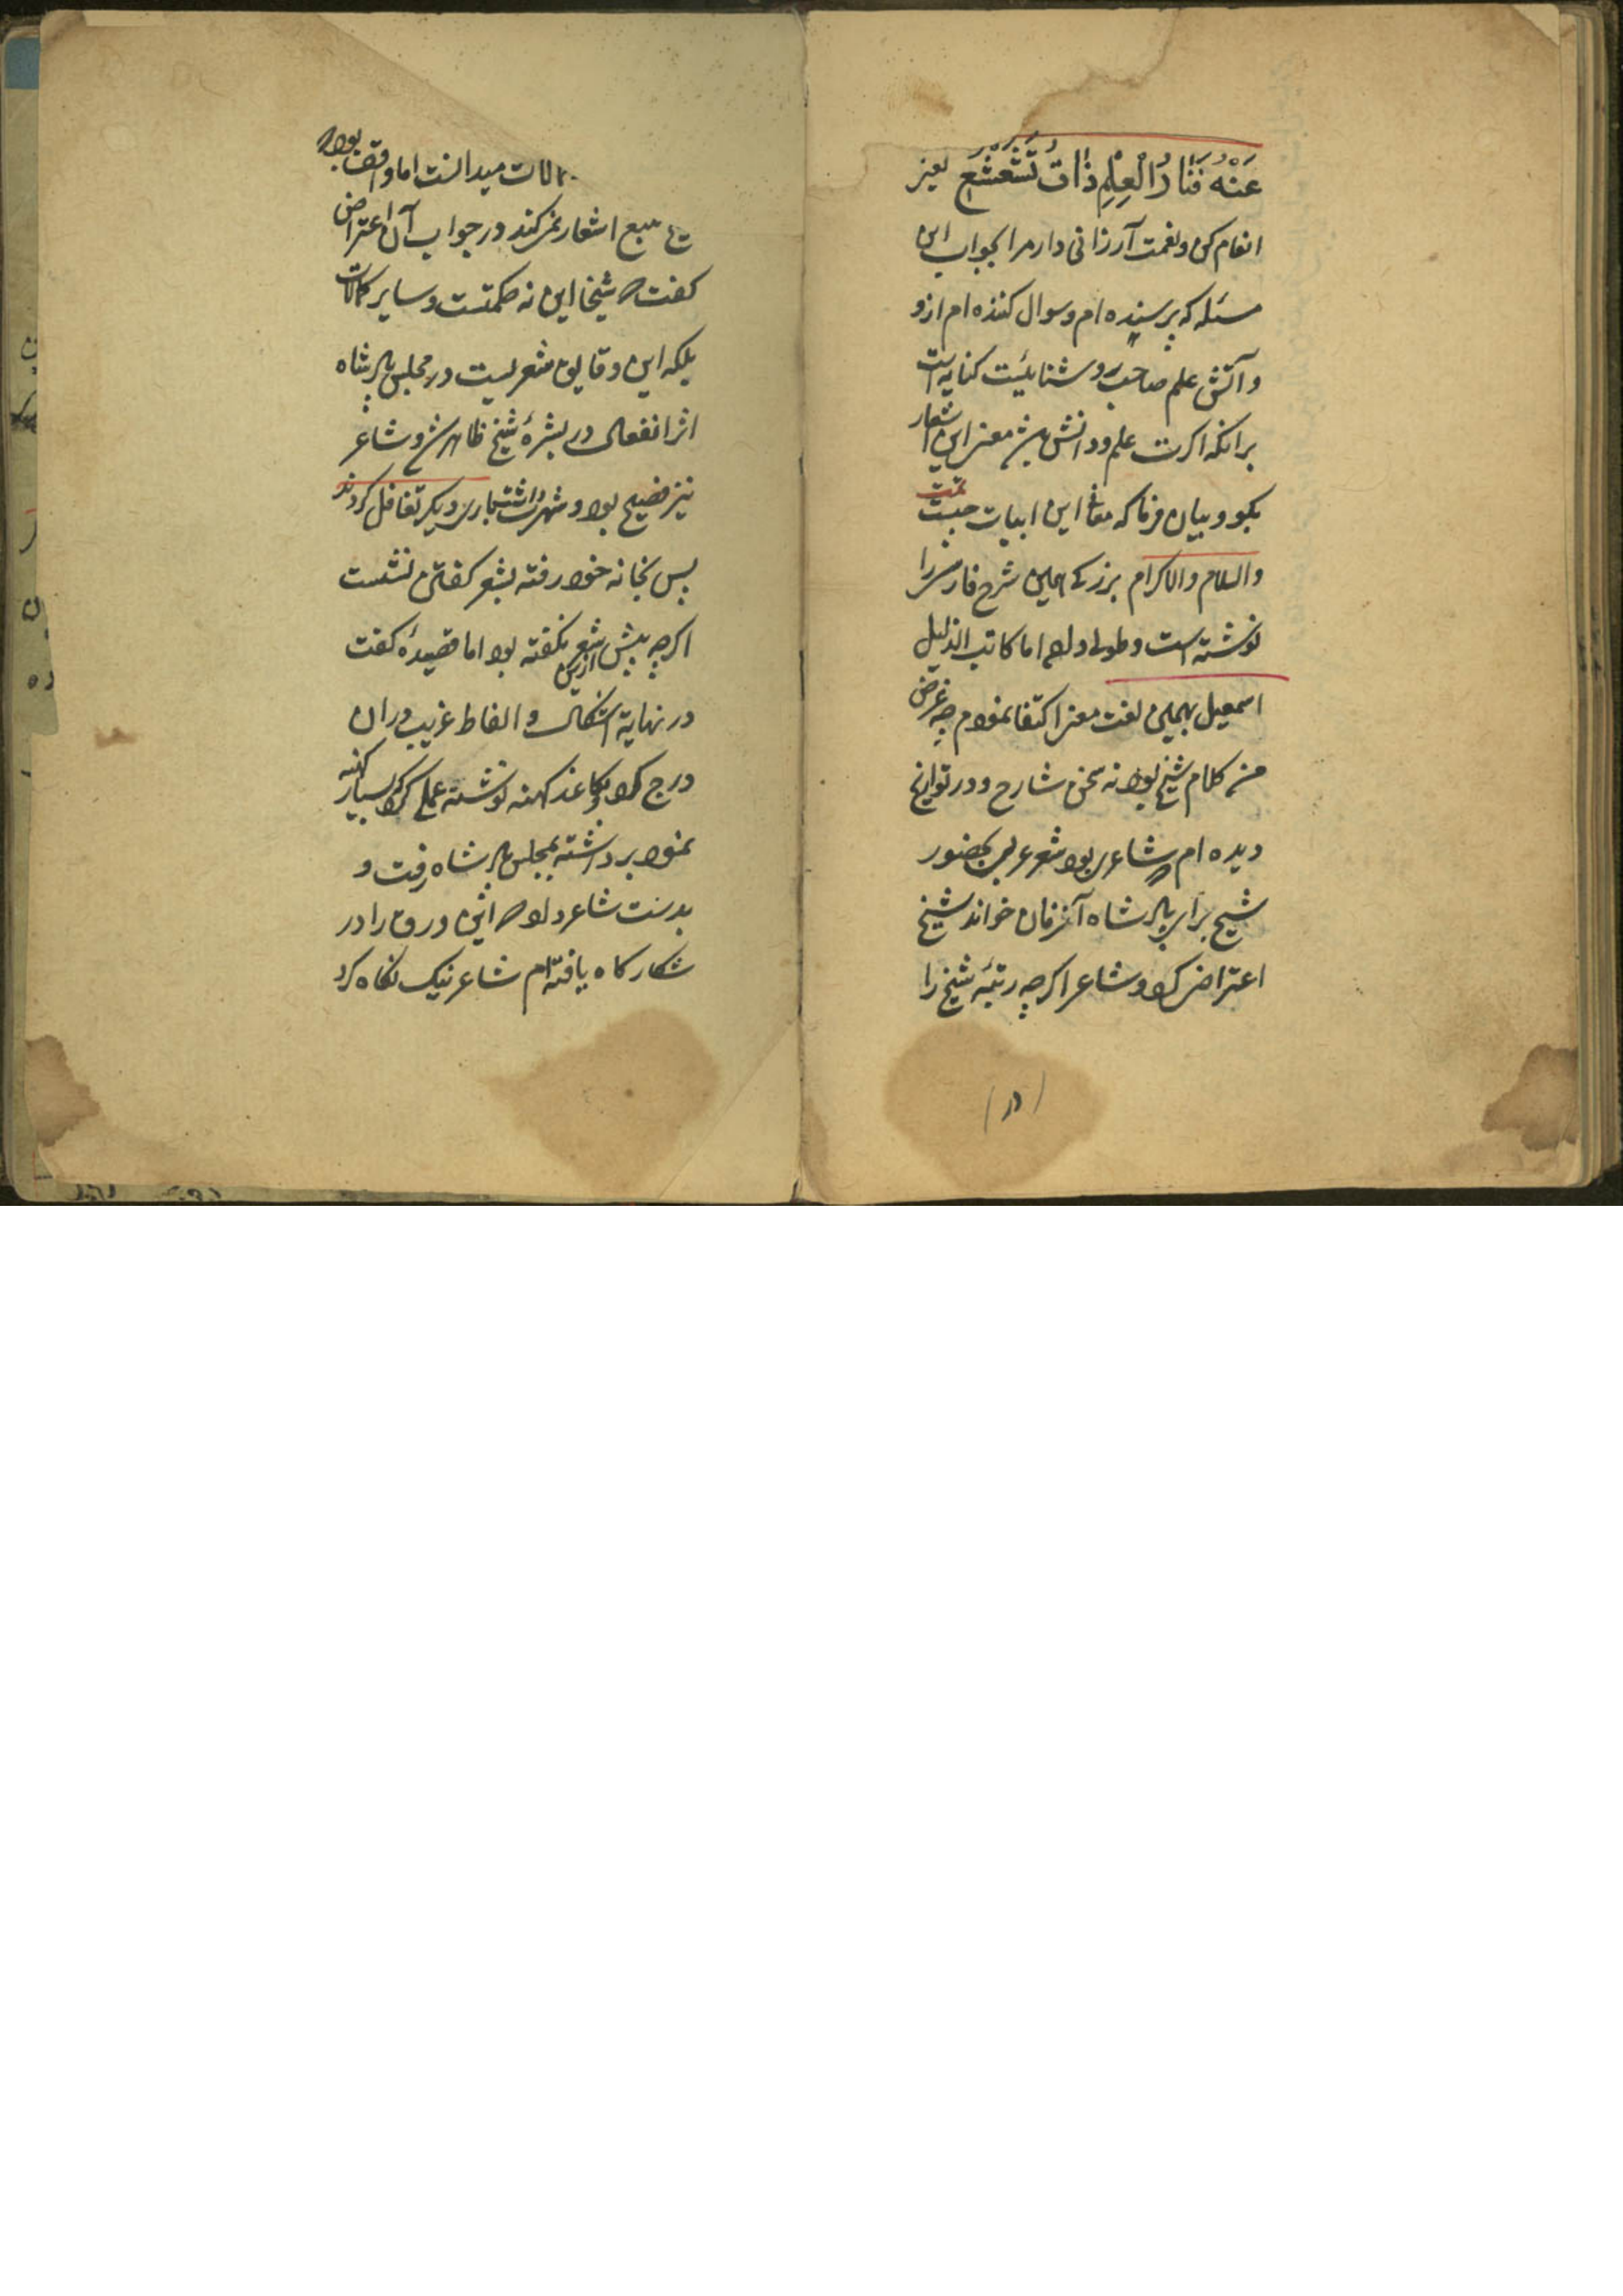 عَنْهُ فَنَارُ الْعِلْمِ ذَاتُ تَشَعْشُعٍ یعنی
انعام کن و نعمت آرزانی دار مرا بجواب این
مسئله که پرسیده ام و سوال کننده ام ازو
و آتش علم صاحب روشنائیست کنایه است
برانکه اکرت علم و دانش هست معنی این اشعار
بکو و بیان فرما که معانی این ابیات چیست تمت
والسلام والاکرام بزرکی همین شرح فارسی را
نوشته است و طولی داده اما کاتب الذلیل
اسمعیل بهمین لغت معنی اکتفا نمودم چه غرض
من کلام شیخ بود نه سخن شارح و در تواریخ
دیده ام که شاعری بود شعر عربی بحضور
شیخ برابر پادشاه آنزمان خواند شیخ
اعتراض کرد و شاعر اکرچه رتبهٔ شیخ را
(۱۱)
کمالات میدانست اما واقف بود که
تتبع اشعار نمی کند در جواب آن اعتراض
کفت که شیخا این نه حکمتست و سایر کمالات
بلکه این دقایق شعریست در مجلس پادشاه
اثر انفعالی در بشرهٔ شیخ ظاهر شد و شاعر
نیز فصیح بود و شهرت داشت بجاری دیکر تغافل کردند
پس بخانه خود رفته بشعر کفتن نشست
اکرچه پیش ازین شعر نکفته بود اما قصیدهٔ کفت
در نهایة اشکال و الفاظ غریب دران
درج کرد و بکاغذ کهنه نوشته عملی کرد بسیار کهنه
نمود برداشته بمجلس پادشاه رفت و
بدست شاعر داد که این ورق را در
شکارکاه یافته ام شاعر نیک نکاه کرد